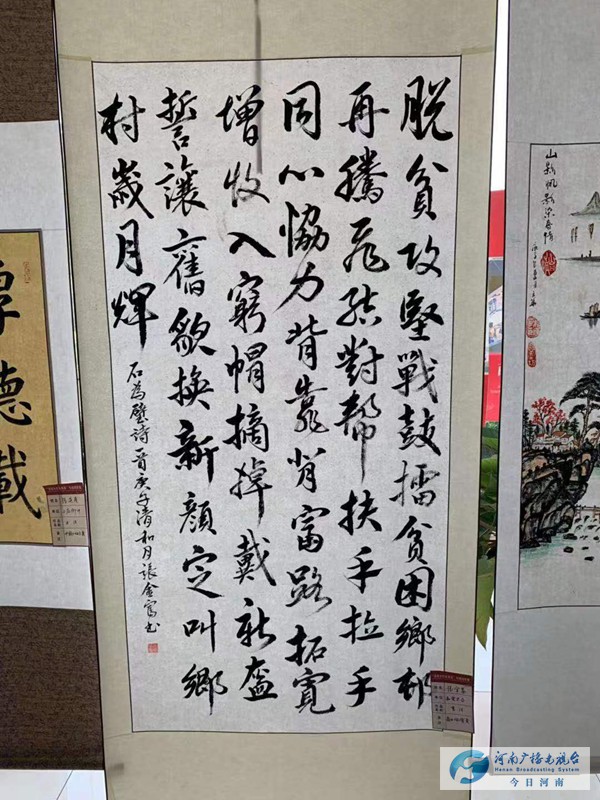 脱貧攻堅戰鼓擂貧困鄉邨
再騰飛結對幫扶手拉手
同心協力背靠背富路拓寬
增收入窮帽摘掉戴新盔
誓讓舊貌換新顔定叫鄉
村歲月輝
石為壁詩一首庚子清和月張金富书
厚德載
山影帆影
河南广播电视台
Henan Broadcasting System
今日河南